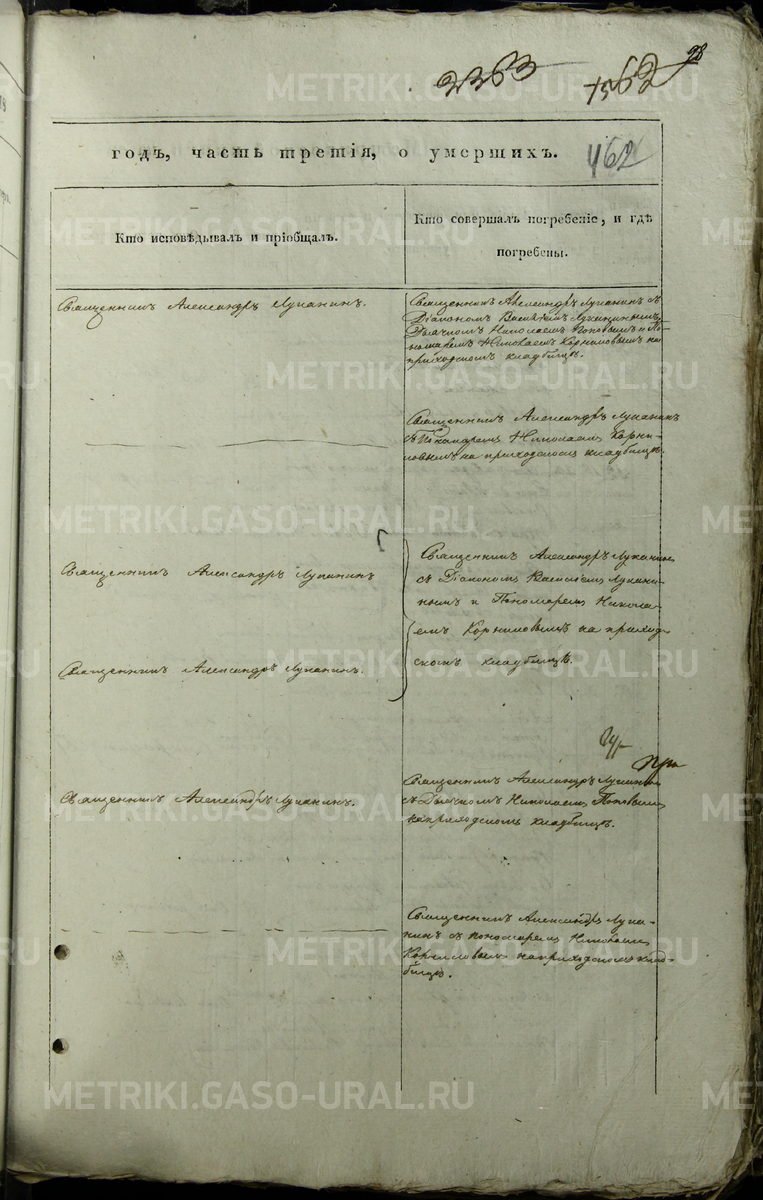 98
2363
1562
462
годъ, часть третія, о умершихъ.
Кто исповѣдывалъ и пріобщалъ.
Кто совершалъ погребеніе, и гдѣ
погребены.
Священникъ Александръ Луканинъ.
Священникъ Александръ Луканинъ съ
Діакономъ Василіемъ Луканинымъ
Дьячкомъ Николаемъ Поповымъ и По-
номаремъ Николаемъ Корниловымъ на
приходскомъ кладбищѣ.
Священникъ Александръ Луканинъ
съ Пономаремъ Николаемъ Корни-
ловымъ на приходскомъ кладбищѣ.
Священникъ Александръ Луканинъ
Священникъ Александръ Луканинъ
съ Діакономъ Василіемъ Лукани-
нымъ и Пономаремъ Никола-
емъ Корниловымъ на приход-
скомъ кладбищѣ.
Священникъ Александръ Луканинъ.
Священникъ Александръ Луканинъ.
Священникъ Александръ Луканинъ
съ Дьячкомъ Николаемъ Поповымъ
на приходскомъ кладбищѣ.
Священникъ Александръ Лука-
нинъ съ пономаремъ Николаемъ
Корниловымъ на приходскомъ клад-
бищѣ.
METRIKI.GASO-URAL.RU